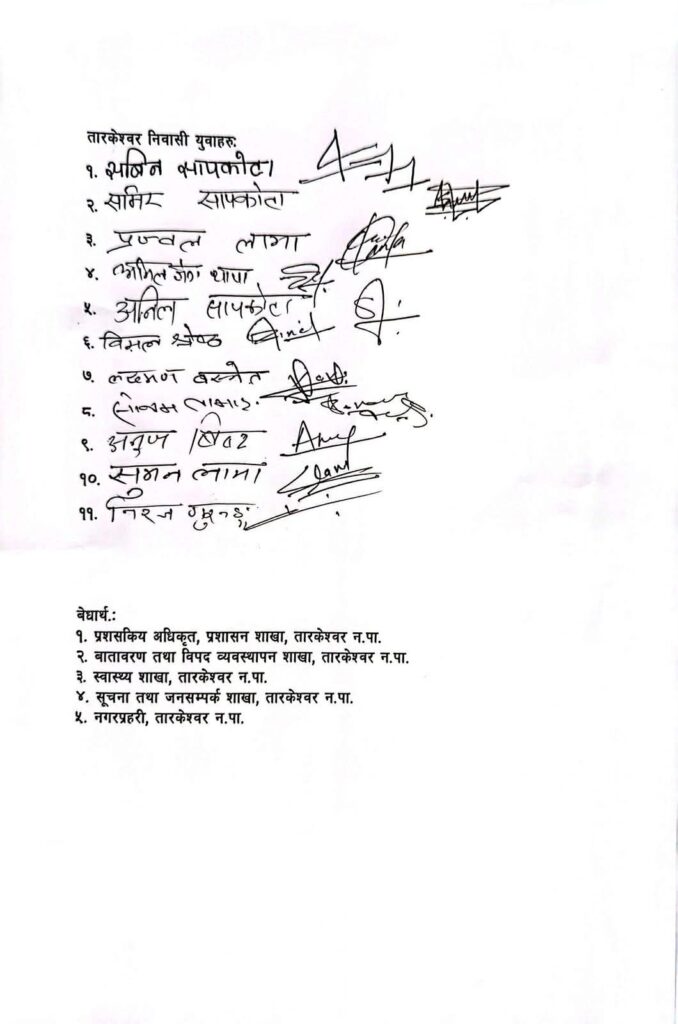 तारकेश्वर निवासी युवाहरु:
१. सबिन सापकोटा
२. समिर सापकोटा
३. प्रज्वल लामा
४. थापा
५. अनिल सापकोटा
६. बिमल श्रेष्ठ
७. लक्ष्मण बस्नेत
८.
९. अनुज
१०. सुमन लामा
११. निरज गुरुङ्ग
बेधार्थ.:
१. प्रशासकिय अधिकृत, प्रशासन शाखा, तारकेश्वर न.पा.
२. बातावरण तथा विपद व्यवस्थापन शाखा, तारकेश्वर न.पा.
३. स्वास्थ्य शाखा, तारकेश्वर न.पा.
४. सूचना तथा जनसम्पर्क शाखा, तारकेश्वर न.पा.
५. नगरप्रहरी, तारकेश्वर न.पा.